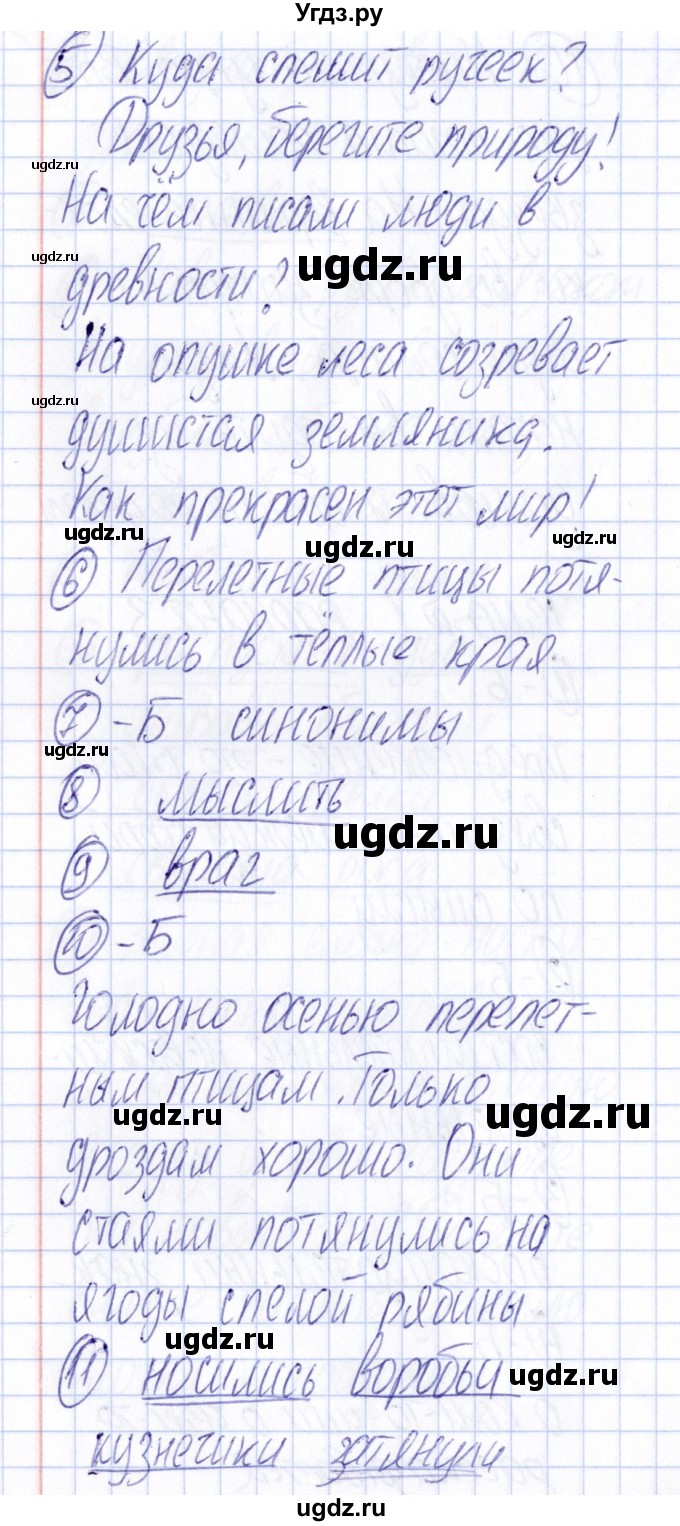 Угдз.ру
5 Куда спешит ручеек?
Друзья, берегите природу!
ugdz.ru
На чём писали люди в
ugdz.ru
ugdz.ru
древности?
На опушке леса созревает
ugdz.ru
душистая земляника.
Как прекрасен этот мир!
ugdz.ru
ugdz.ru
ugdz.ru
6 Перелетные птицы потя-
нулись в тёплые края
7 - Б синонимы
ugdz.ru
8 мыслить
ugdz.ru
9 враг
10 - Б
Голодно осенью перелёт-
ным птицам. Только
ugdz.ru
ugdz.ru
дроздам хорошо. Они
стаями потянулись на
ягоды спелой рябины
ugdz.ru
11 носились воробьи
ugdz.ru
кузнечики затянули
ugdz.ru